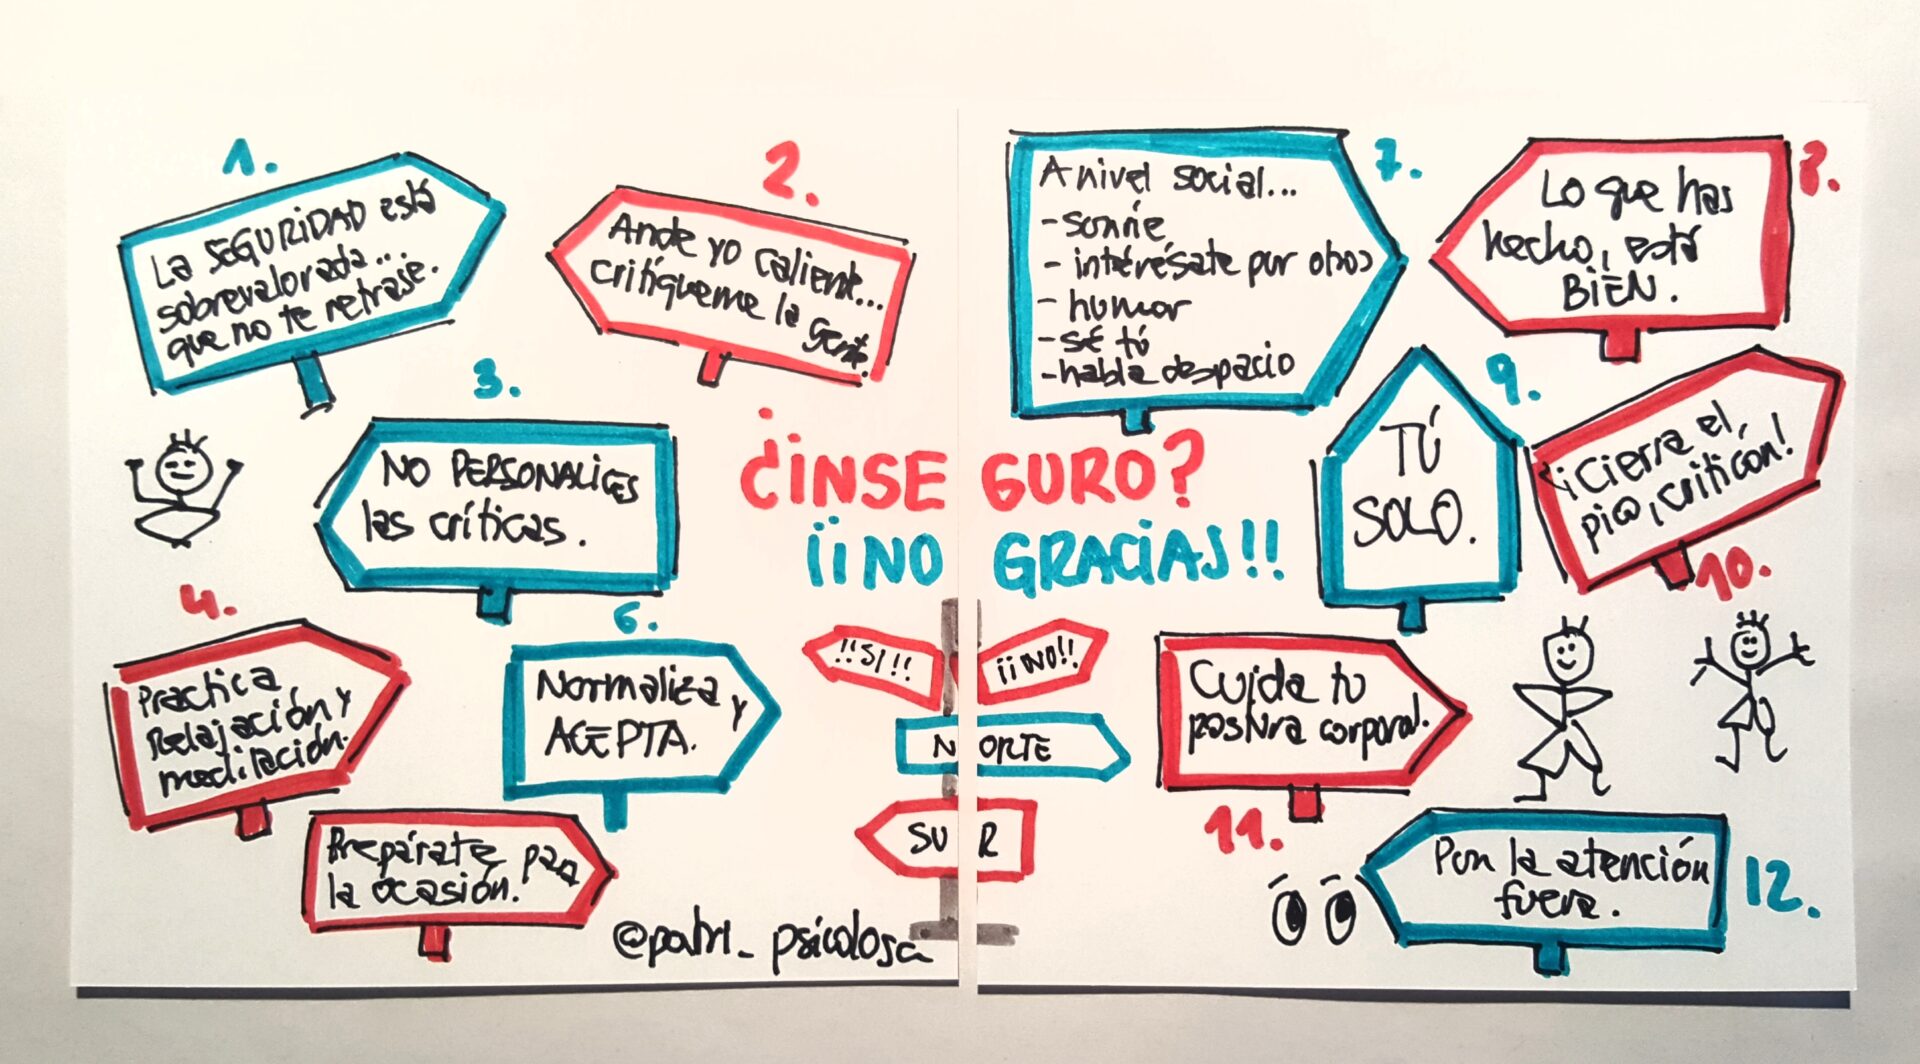 1.
La SEGURIDAD está
sobrevalorada...
que no te retrase.
2.
Ande yo caliente...
critíqueme la gente.
3.
NO PERSONALICES
las críticas.
¿¡INSE GURO?
¡¡NO GRACIAS!!
4.
Practica
Relajación y
meditación.
Prepárate para
la ocasión.
6.
Normaliza y
ACEPTA.
!!SI!!
¡¡NO!!
NORTE
SUR
@patri_psicologa
7.
A nivel social...
- sonríe
- intérésate por otros
- humor
- sé tú
- habla despacio
8.
Lo que has
hecho, está
BIEN.
9.
TÚ
SOLO.
¡¡Cierra el
pico, criticón!
10.
Cuida tu
postura corporal.
11.
Pon la atención
fuera.
12.